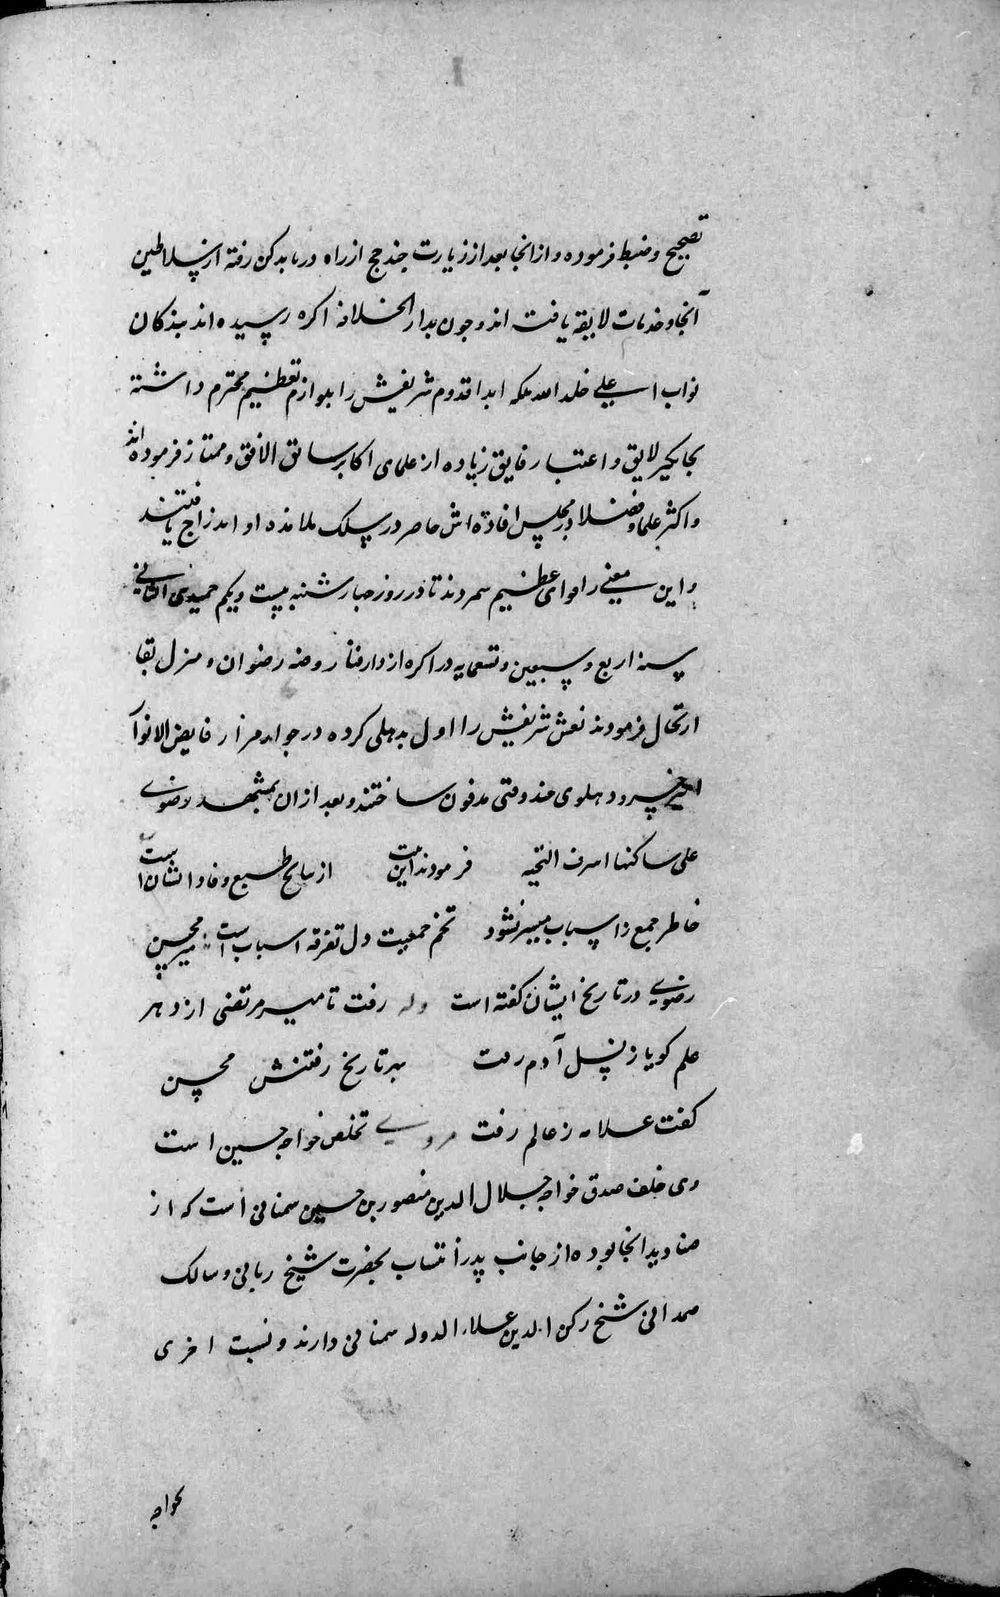 تصحیح و ضبط فرموده و از انجا بعد از زیارت چند حج از راه دریا بدکن رفته از سلاطین
آنجا و خدمات لایقه یافت اند و چون بدار الخلافه اکره رسیده اند بندکان
نواب اعلی خلد الله ملکه ابدا قدوم شریفش را بلوازم تعظیم محترم داشته
بجاکیر لایق و اعتبار فایق زیاده از علمای اکابر سابق الافق و ممتاز فرموده اند
و اکثر علما و فضلا در مجلس افاده اش حاضر در سلک تلامذه او اندراج یافتند
و این معنی را عظیم سمردند تا در روز جهارشنبه بیست و یکم الثانی
سنه اربع و سبعین و تسعمایه در اکره از دار فنا روضه رضوان و منزل بقا
ارتحال فرمودند نعش شریفش را اول بدهلی کرده در جوار مزار فایض الانوار
امیر خسرو دهلوی صندوقی مدفون ساختند و بعد از ان بمشهد رضوی
علی ساکنها اشرف التحیه فرمودند این بیت از نتایج طبع وقاد ایشان است
خاطر جمع ز اسباب میسر نشود تخم جمعیت دل تفرقه اسباب است میر محسن
رضوی در تاریخ ایشان کفته است وله رفت تا میر مرتضی از دهر
علم کویا ز نسل آدم رفت بهر تاریخ رفتنش محسن
کفت علامه ز عالم رفت مروی تخلص خواجه حسین است
وی خلف صدق خواجه جلال الدین منصور بن حسین سمنانی است که از
صنادید انجا بوده از جانب پدر انتساب بحضرت شیخ ربانی و سالک
صمدانی شیخ رکن الدین علاء الدوله سمنانی دارند و نسبت اخری
بخواجه